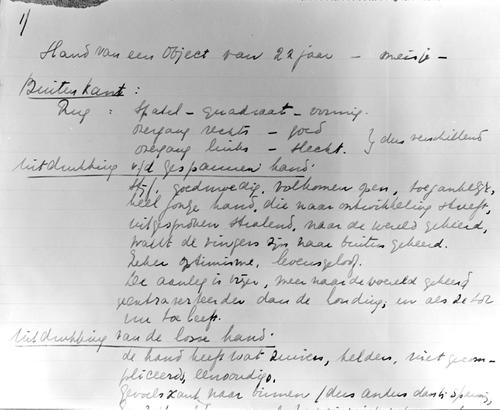 1)
Hand van een Object van 22 jaar - meisje -
Buitenkant:
Rug : Spatel - quadraat - vormig.
overgang rechts - goed
overgang links - slecht. } dus verschillend
Uitdrukking v/d gespannen hand.
Stijf, goedmoedig, volkomen open, toegankelijk,
heel jonge hand, die naar ontwikkeling streeft,
uitgesproken stralend, naar de wereld gekeerd,
want de vingers zijn naar buiten gekeerd.
Zeker optimisme, levensgeloof.
De aanleg is vrijer, meer naar de wereld gekeerd
geextraverteerder dan de houding, en als ze tot
nu toe leeft.
Uitdrukking van de losse hand.
de hand heeft wat zuivers, helders, niet gecom-
pliceerd, eenvoudigs.
Gevoelskant naar binnen (dus anders dan bij